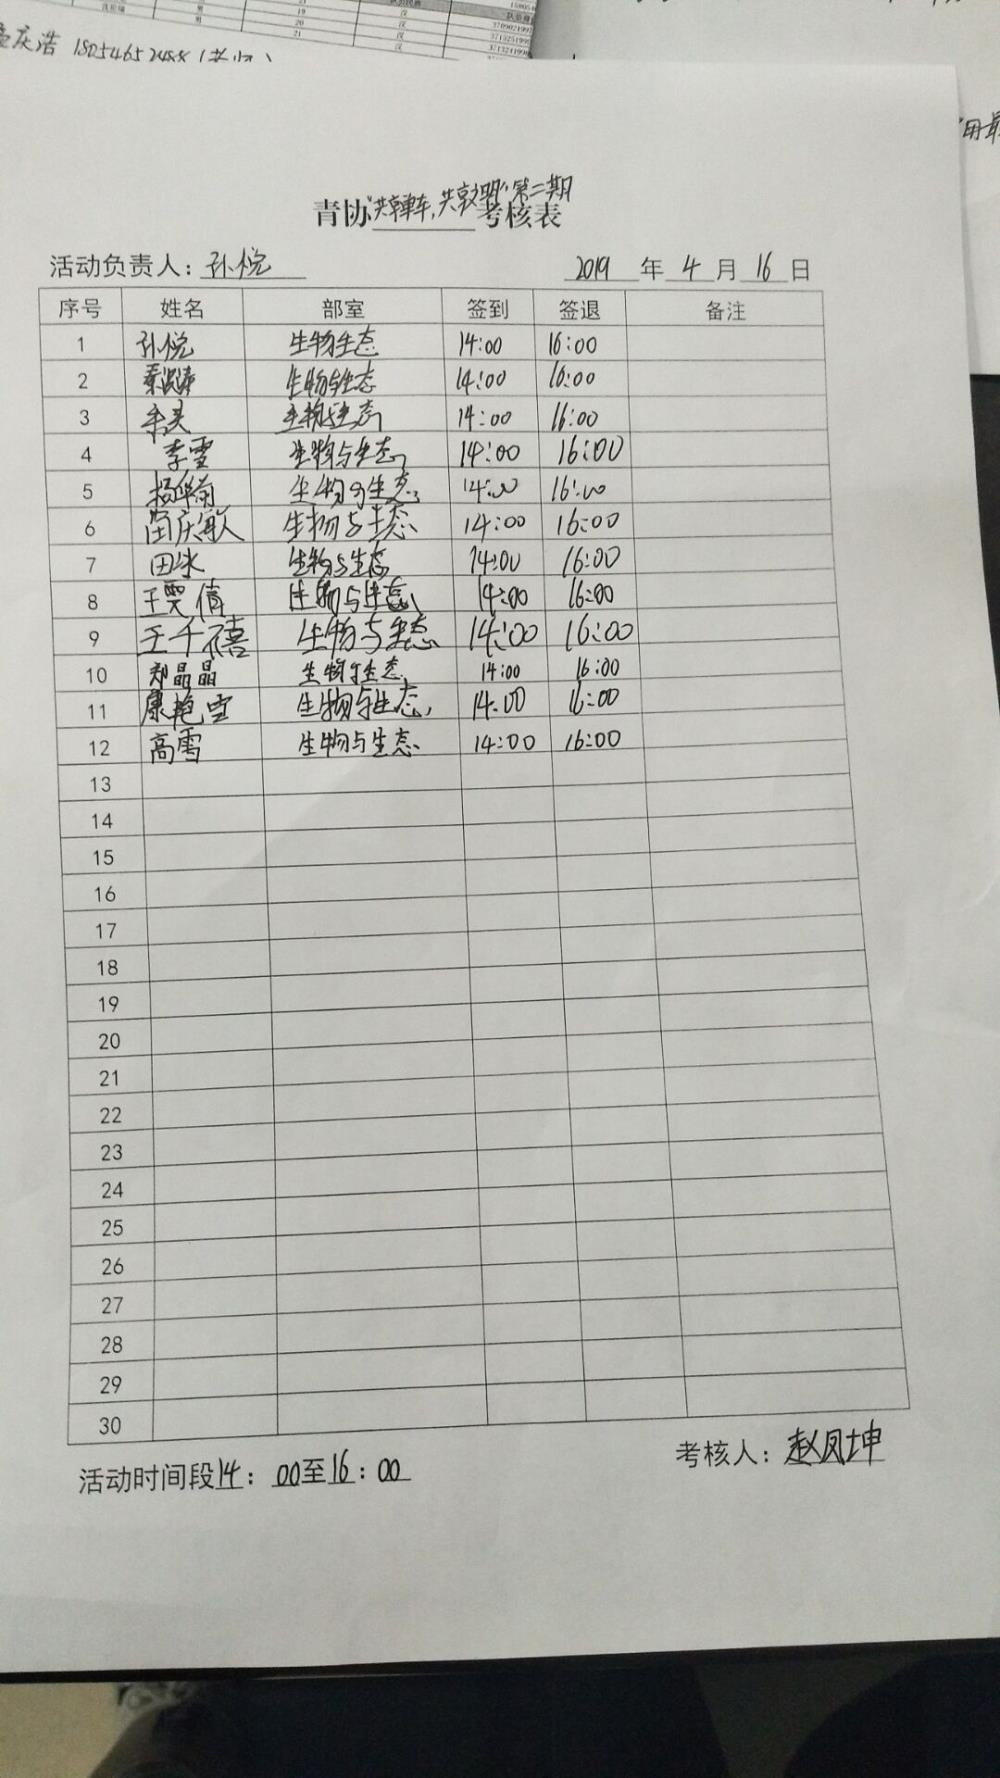 青协"共享单车,共享文明"第二期考核表
活动负责人：孙悦 2019年4月16日
序号 姓名 部室 签到 签退 备注
1 孙悦 生物生态 14:00 16:00
2 生物与生态 14:00 16:00
3 生物与生态 14:00 16:00
4 李雪 生物与生态 14:00 16:00
5 生物与生态 14:00 16:00
6 生物与生态 14:00 16:00
7 田冰 生物与生态 14:00 16:00
8 王雯倩 生物与生态 14:00 16:00
9 王千禧 生物与生态 14:00 16:00
10 郑晶晶 生物与生态 14:00 16:00
11 康艳雪 生物与生态 14:00 16:00
12 高雪 生物与生态 14:00 16:00
13
14
15
16
17
18
19
20
21
22
23
24
25
26
27
28
29
30
活动时间段14：00至16：00 考核人：赵凤坤